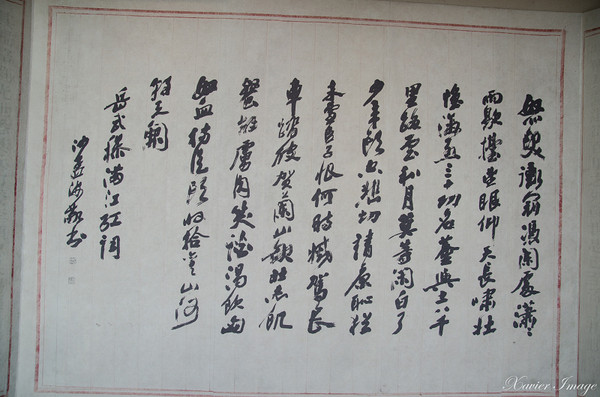 怒髮衝冠憑闌處瀟〻
雨歇擡望眼仰天長嘯壯
懷激烈三十功名塵與土八千
里路雲和月莫等閒白了
少年頭空悲切靖康恥猶
未雪臣子恨何時滅駕長
車踏破賀蘭山缺壯志飢
餐胡虜肉笑談渴飲匈
奴血待從頭收拾舊山河
朝天闕
岳武穆滿江紅詞
沙孟海敬書
Xavier Image